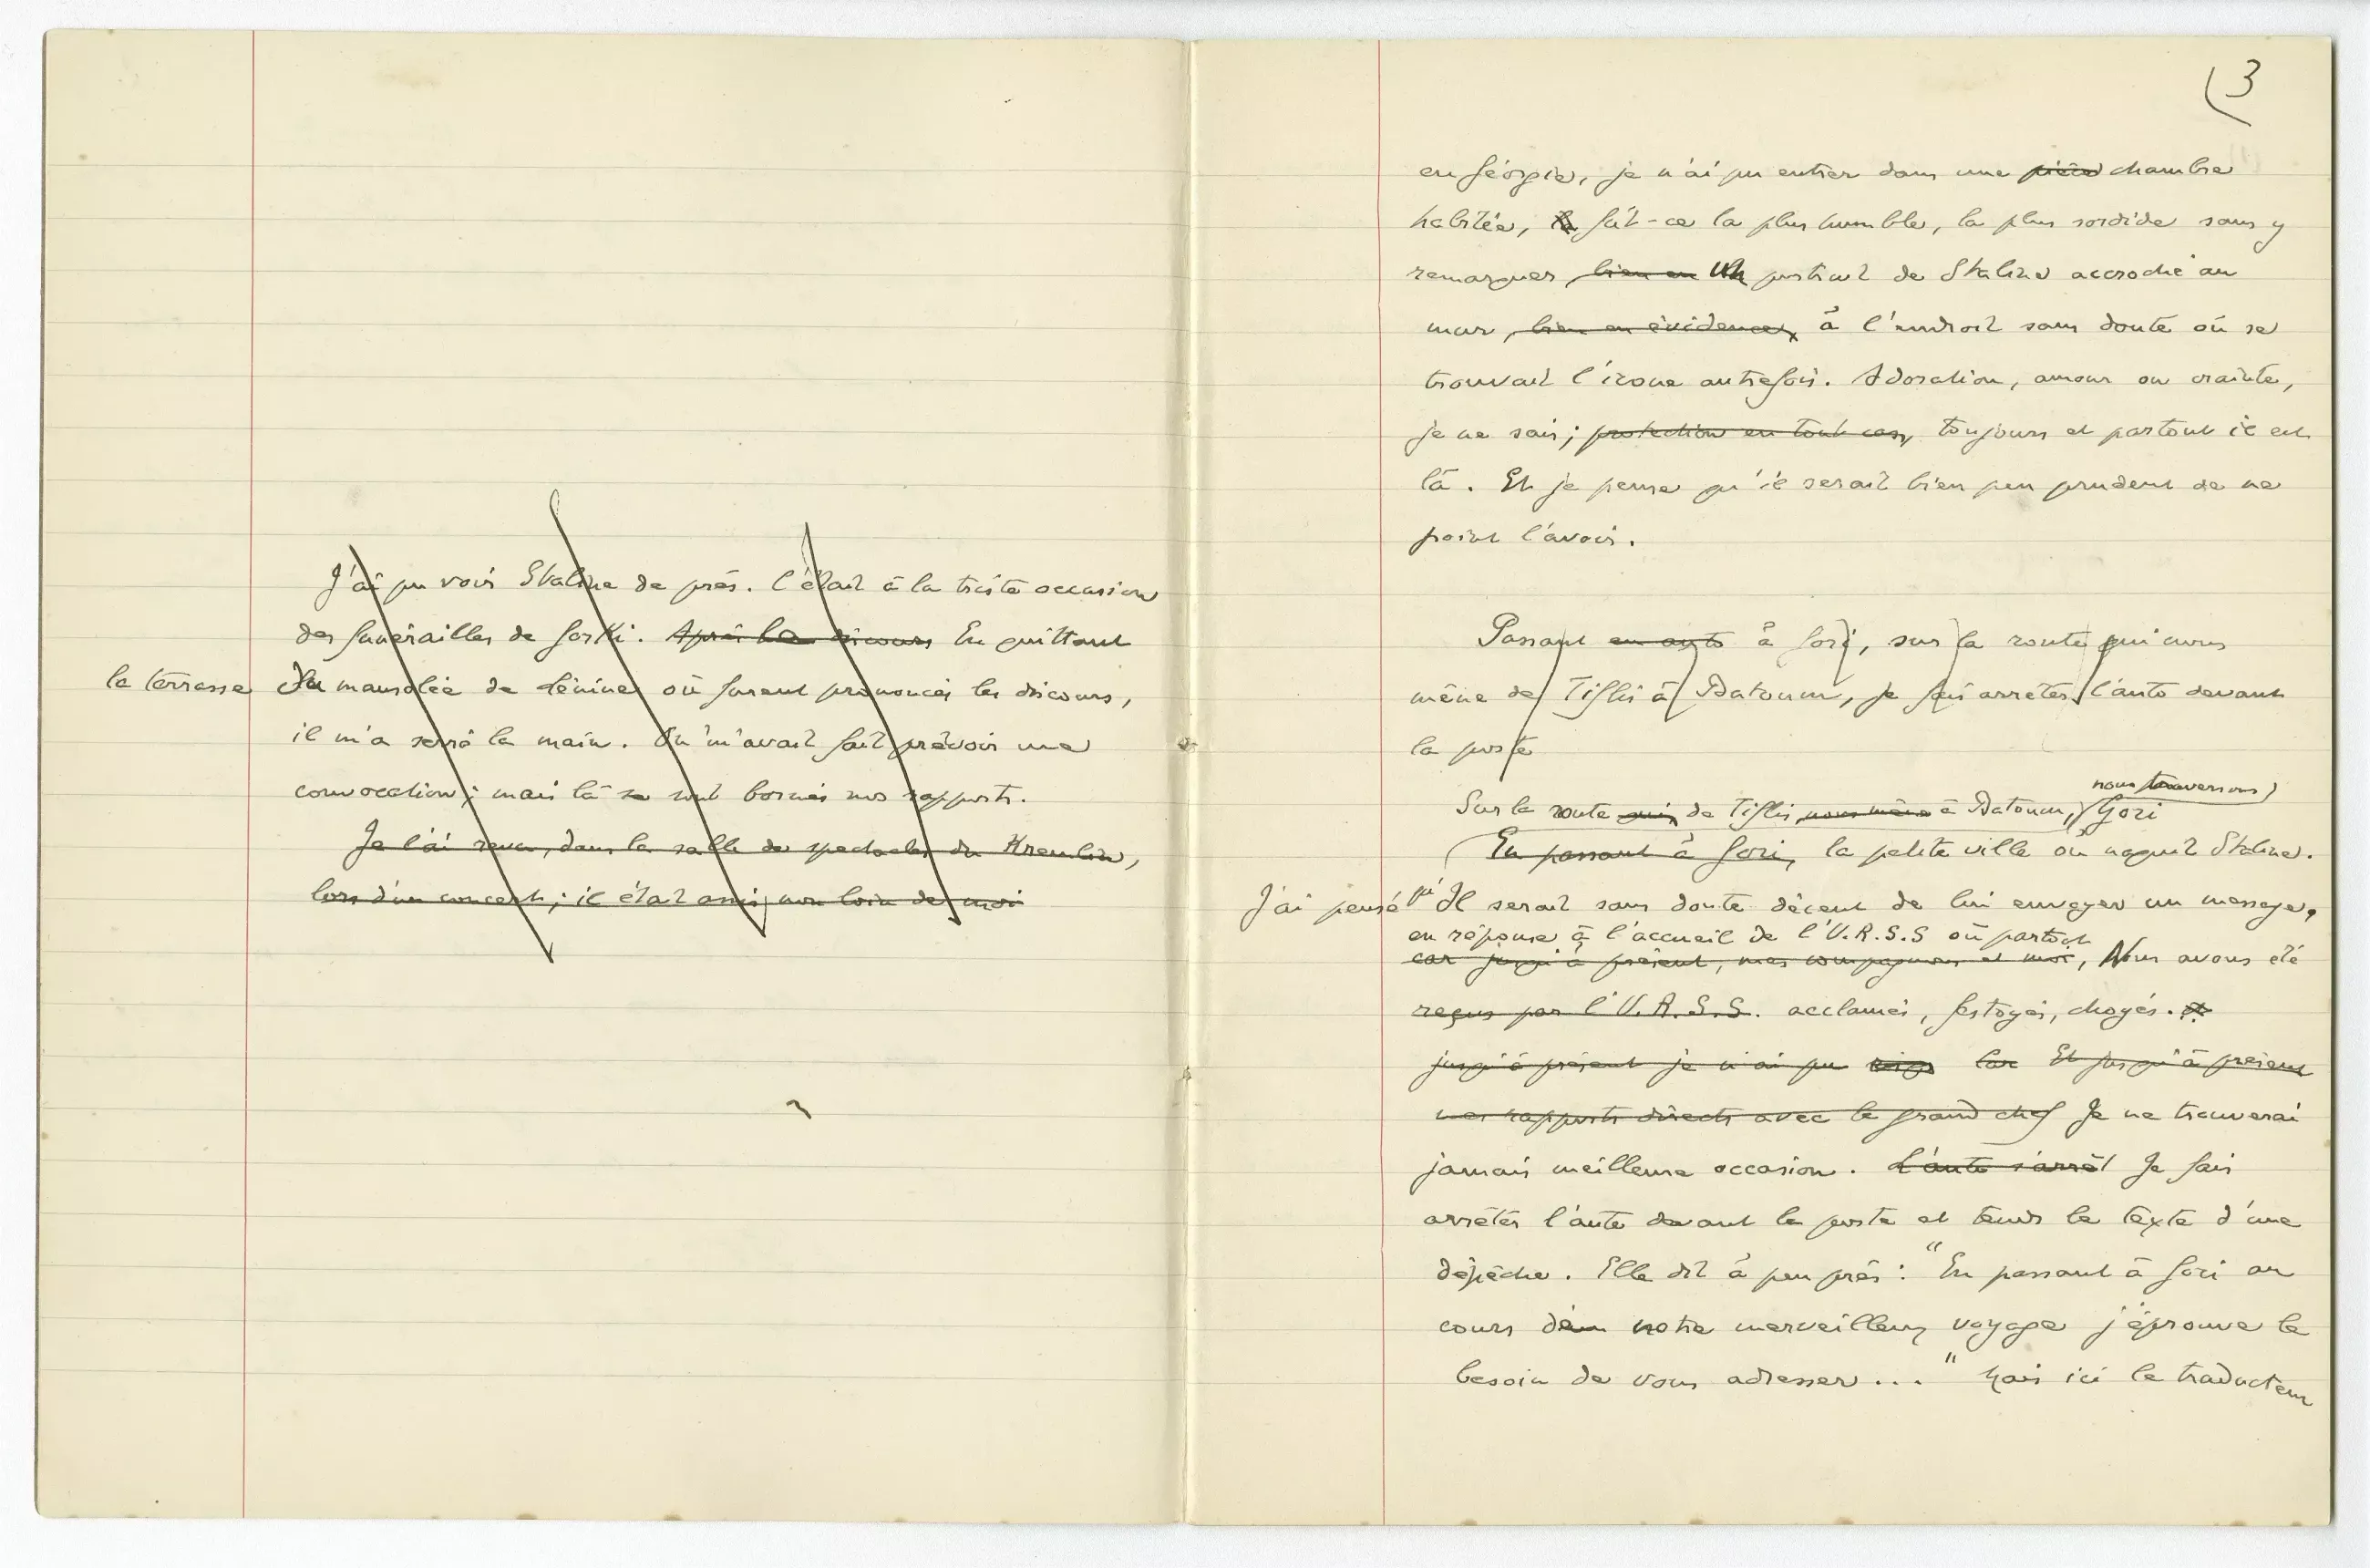 J'ai pu voir Staline de près. C'était à la triste occasion
des funérailles de Gorki. Après les discours En quittant
la terrasse du mausolée de Lénine où furent prononcés les discours,
il m'a serré la main. On m'avait fait prévoir une
convocation; mais là se sont bornés nos rapports.
Je l'ai revu, dans la salle de spectacles du Kremlin,
lors d'un concert; il était assis non loin de moi
3
en Géorgie, je n'ai pu entrer dans une pièce chambre
habitée, fût-ce la plus humble, la plus sordide sans y
remarquer bien en un portrait de Staline accroché au
mur, bien en évidence, à l'endroit sans doute où se
trouvait l'icone autrefois. Adoration, amour ou crainte,
je ne sais; protection en tout cas, toujours et partout il est
là. Et je pense qu'il serait bien peu prudent de ne
point l'avoir.
Passant en auto à Gori, sur la route qui
mène de Tiflis à Batoum, je fais arrêter l'auto devant
la poste
nous traversons
Sur la route qui de Tiflis nous mène à Batoum, Gori
En passant à Gori, la petite ville où naquit Staline.
J'ai pensé qu' Il serait sans doute décent de lui envoyer un message,
en réponse à l'accueil de l'U.R.S.S où partout
car jusqu'à présent, mes compagnons et moi, Nous avons été
reçus par l'U.R.S.S. acclamés, festoyés, choyés.
jusqu'à présent je n'ai pu Car Et jusqu'à présent
mes rapports directs avec le grand chef Je ne trouverai
jamais meilleure occasion. L'auto s'arrêt Je fais
arrêter l'auto devant la poste et tends le texte d'une
dépêche. Elle dit à peu près: "En passant à Gori au
cours d'un notre merveilleux voyage j'éprouve le
besoin de vous adresser..." Mais ici le traducteur